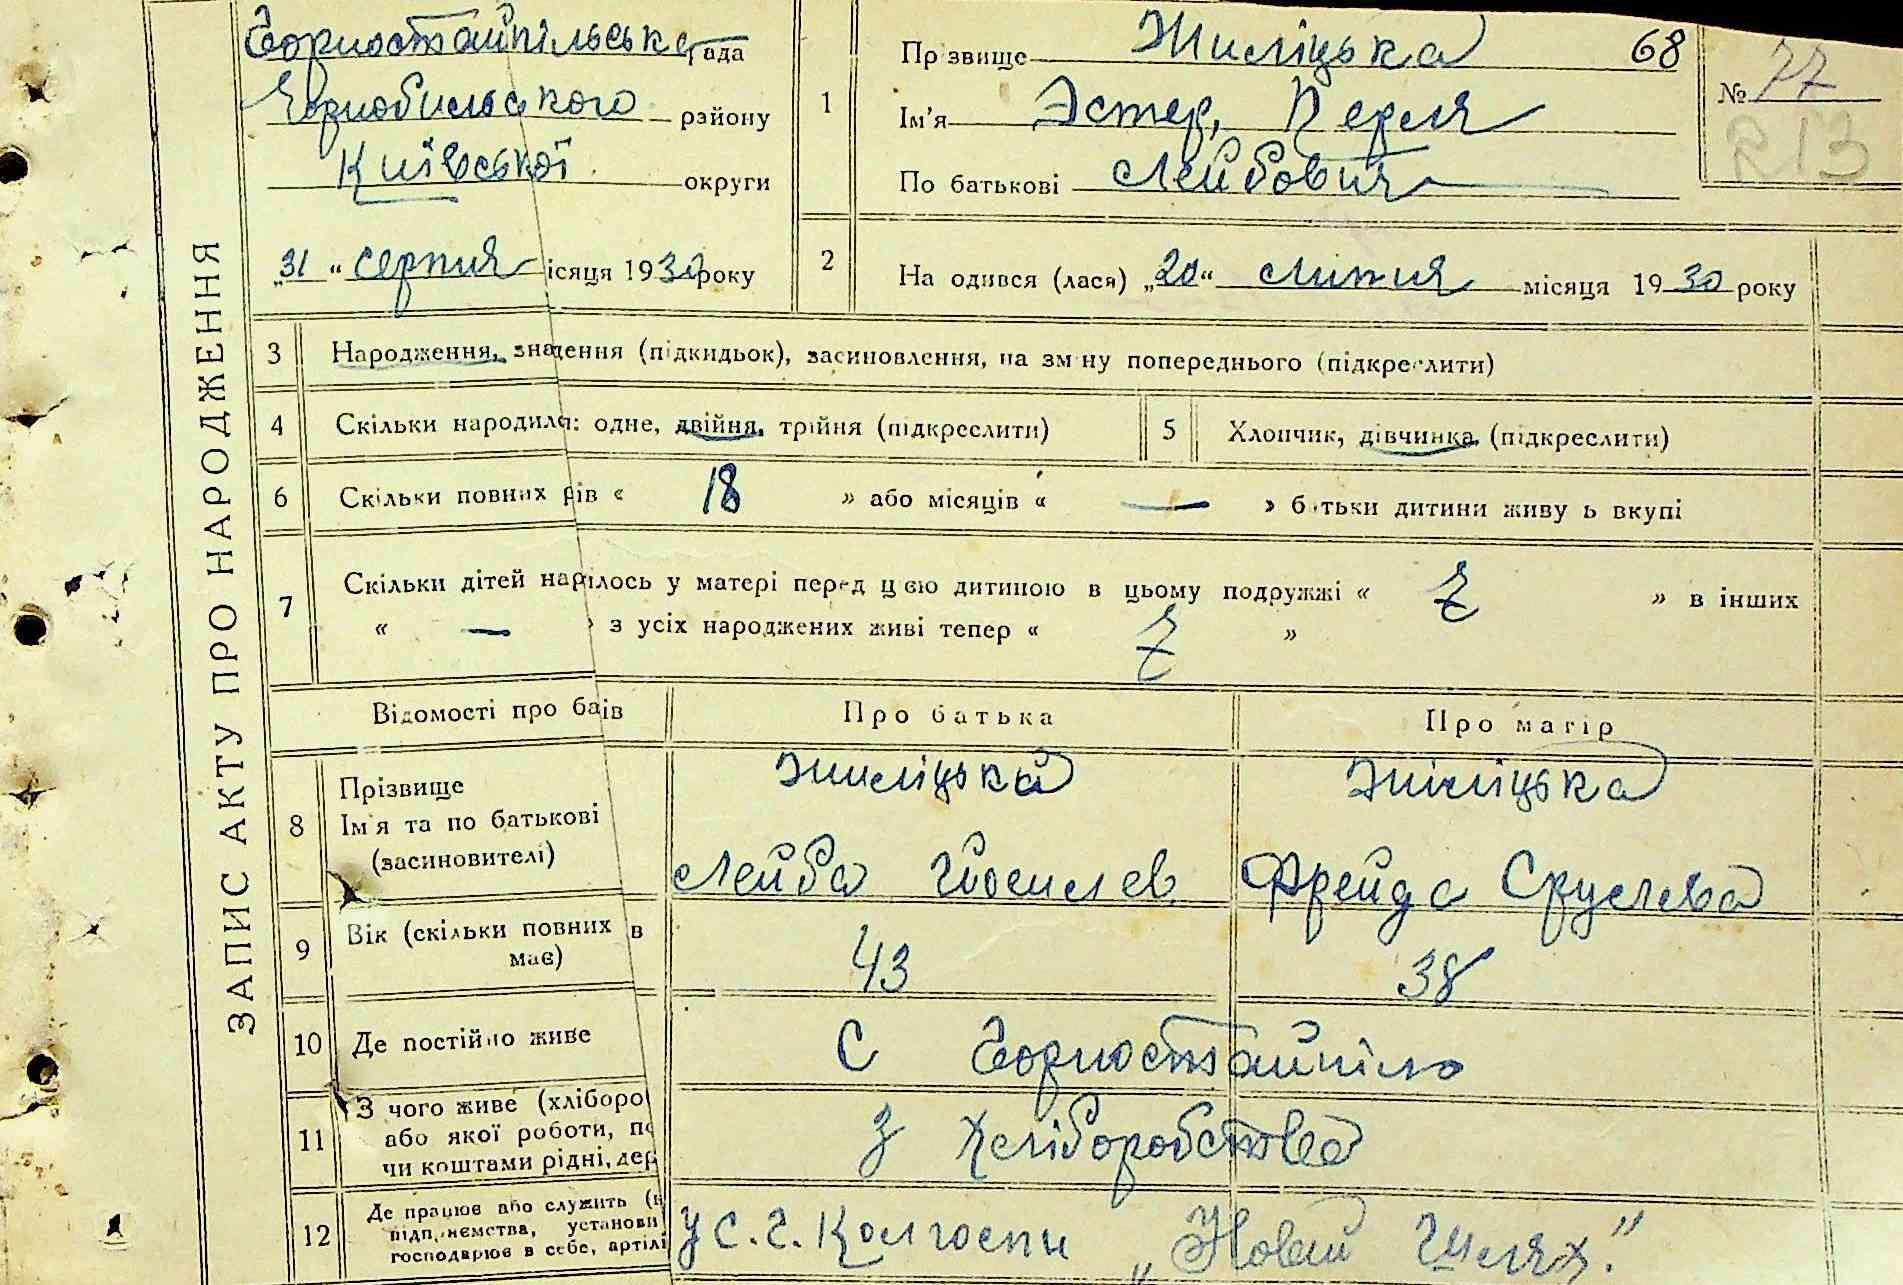 Горностайпільська рада
Чорнобильського району
Київської округи
„31“ серпня місяця 1930 року
ЗАПИС АКТУ ПРО НАРОДЖЕННЯ
1 Прізвище Жиліцька 68
Ім'я Эстер, Перля
По батькові Лейбовна
№ 77
R 13
2 На одився (лася) „20“ липня місяця 1930 року
3 Народження, знадення (підкидьок), засиновлення, на зміну попереднього (підкреслити)
4 Скільки народила: одне, двійня, трійня (підкреслити)
5 Хлопчик, дівчинка (підкреслити)
6 Скільки повних рів « 18 » або місяців « — » батьки дитини живуть вкупі
7 Скільки дітей нарілось у матері перед цією дитиною в цьому подружжі « 7 » в інших
« — » з усіх народжених живі тепер « 7 »
Відомості про баів Про батька Про матір
8 Прізвище Жиліцький Жиліцька
Ім'я та по батькові
(засиновителі) Лейба Йосилев Фрейда Срулева
9 Вік (скільки повних в
має) 43 38
10 Де постійно живе С Горностайпіль
11 З чого живе (хліборо
або якої роботи, по
чи коштами рідні, дер
З хліборобства
12 Де працює або служить (н
підприємства, установи
господарює в себе, артілі
У С. Г. Колгоспи „Новий Шлях."